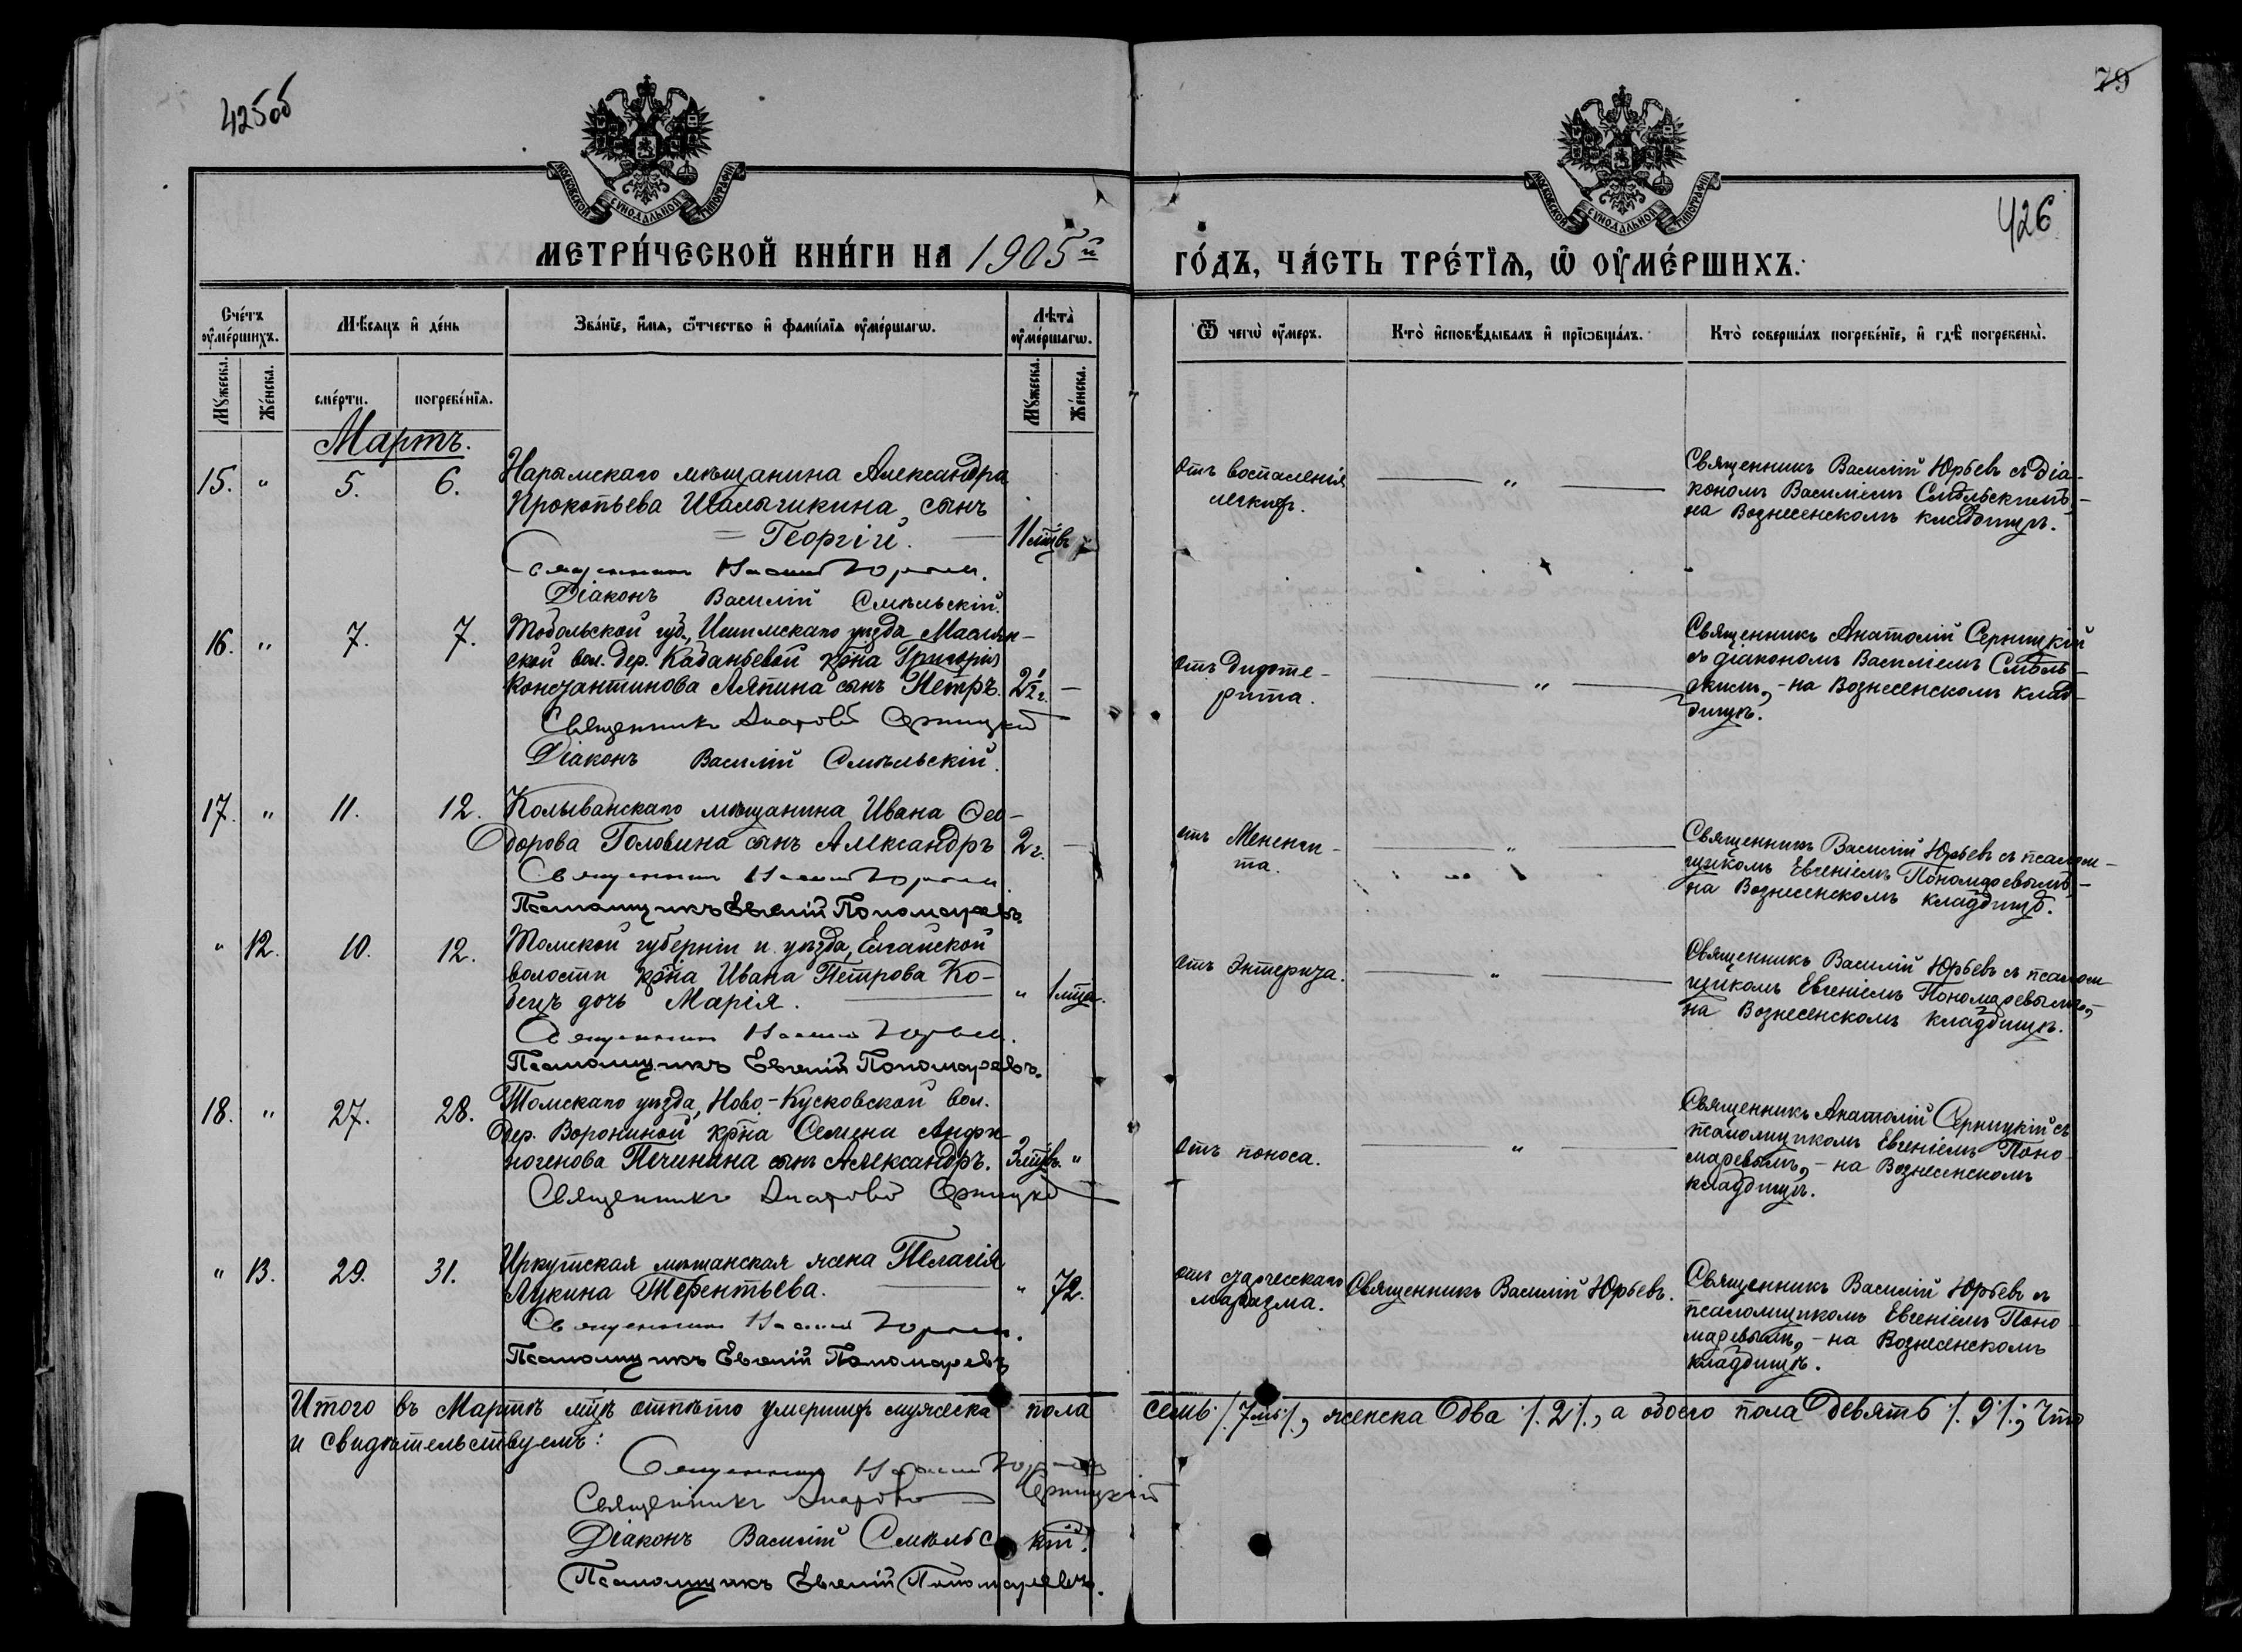 425об
79
426
МОСКОВСКОЙ СѴНОДАЛЬНОЙ ТИПОГРАФІИ
МОСКОВСКОЙ СѴНОДАЛЬНОЙ ТИПОГРАФІИ
МЕТРИ́ЧЕСКОЙ КНИ́ГИ НА 1905й
ГО́ДЪ, ЧА́СТЬ ТРЕ́ТЇѦ, Ѡ҆ ОУ҆МЕ́РШИХЪ.
Сче́тъ оу҆ме́ршихъ.
Мꙋ́жеска.
Же́нска.
Мѣ́сяцъ и҆ де́нь
сме́рти.
погребе́нїя.
Зва́нїе, и҆́мя, ѻ҆́тчество и҆ фами́лїя оу҆ме́ршагѡ.
Лѣ́та оу҆ме́ршагѡ.
Мꙋ́жеска.
Же́нска.
Ѿ чегѡ̀ оу҆́меръ.
Кто̀ и҆сповѣ́дывалъ и҆ прїѻбща́лъ.
Кто̀ соверша́лъ погребе́нїе, и҆ гдѣ̀ погребены̀.
Мартъ.
15. " 5. 6.
Нарымскаго мѣщанина Александра
Прокопьева Шалыгикина сынъ
= Георгій. — 11 мцвъ
Священникъ Василій Юрьевъ.
Діаконъ Василій Смѣльскій.
Отъ воспаленія
легкихъ.
"
Священникъ Василій Юрьевъ съ діа-
кономъ Василіемъ Смѣльскимъ,-
на Вознесенскомъ кладбищѣ.
16. " 7. 7.
Тобольской губ., Ишимскаго уѣзда Маслян-
ской вол. дер. Кабаньевой кр̃на Григорія
Константинова Ляпина сынъ Петръ. 2½ г. —
Священникъ Анатолій Серницкій
Діаконъ Василій Смѣльскій.
Отъ дифте-
рита.
"
Священникъ Анатолій Серницкій
съ діакономъ Василіемъ Смѣль-
скимъ,- на Вознесенскомъ клад-
бищѣ.
17. " 11. 12.
Колыванскаго мѣщанина Ивана Ѳео-
дорова Головина сынъ Александръ 2 г. —
Священникъ Василій Юрьевъ.
Псаломщикъ Евгеній Пономаревъ.
отъ Менинги-
та.
"
Священникъ Василій Юрьевъ съ псалом-
щикомъ Евгеніемъ Пономаревымъ,-
на Вознесенскомъ кладбищѣ.
" 12. 10. 12.
Томской губерніи и уѣзда, Елгайской
волости кр̃на Ивана Петрова Ко-
бецъ дочь Марія. — " 1 мца.
Священникъ Василій Юрьевъ.
Псаломщикъ Евгеній Пономаревъ.
Отъ Энтерита.
"
Священникъ Василій Юрьевъ съ псалом
щикомъ Евгеніемъ Пономаревымъ,-
на Вознесенскомъ кладбищѣ.
18. " 27. 28.
Томскаго уѣзда, Ново-Кусковской вол.
дер. Ворониной кр̃на Семена Анфи-
ногенова Печинина сынъ Александръ. 3 мцвъ. "
Священникъ Анатолій Серницкій
Отъ поноса.
"
Священникъ Анатолій Серницкій съ
псаломщикомъ Евгеніемъ Поно-
маревымъ,- на Вознесенскомъ
кладбищѣ.
" 13. 29. 31.
Иркутская мѣщанская жена Пелагія
Лукина Терентьева. — " 72.
Священникъ Василій Юрьевъ.
Псаломщикъ Евгеній Пономаревъ
отъ старческаго
маразма.
Священникъ Василій Юрьевъ.
Священникъ Василій Юрьевъ съ
псаломщикомъ Евгеніемъ Поно-
маревымъ,- на Вознесенскомъ
кладбищѣ.
Итого въ Мартѣ мцѣ отпѣто умершихъ мужеска пола семь /.7мь/., женска два /.2/., а обоего пола девять /.9/.; Что
и свидѣтельствуемъ:
Священникъ Василій Юрьевъ
Священникъ Анатолій Серницкій
Діаконъ Василій Смѣльскій.
Псаломщикъ Евгеній Пономаревъ.